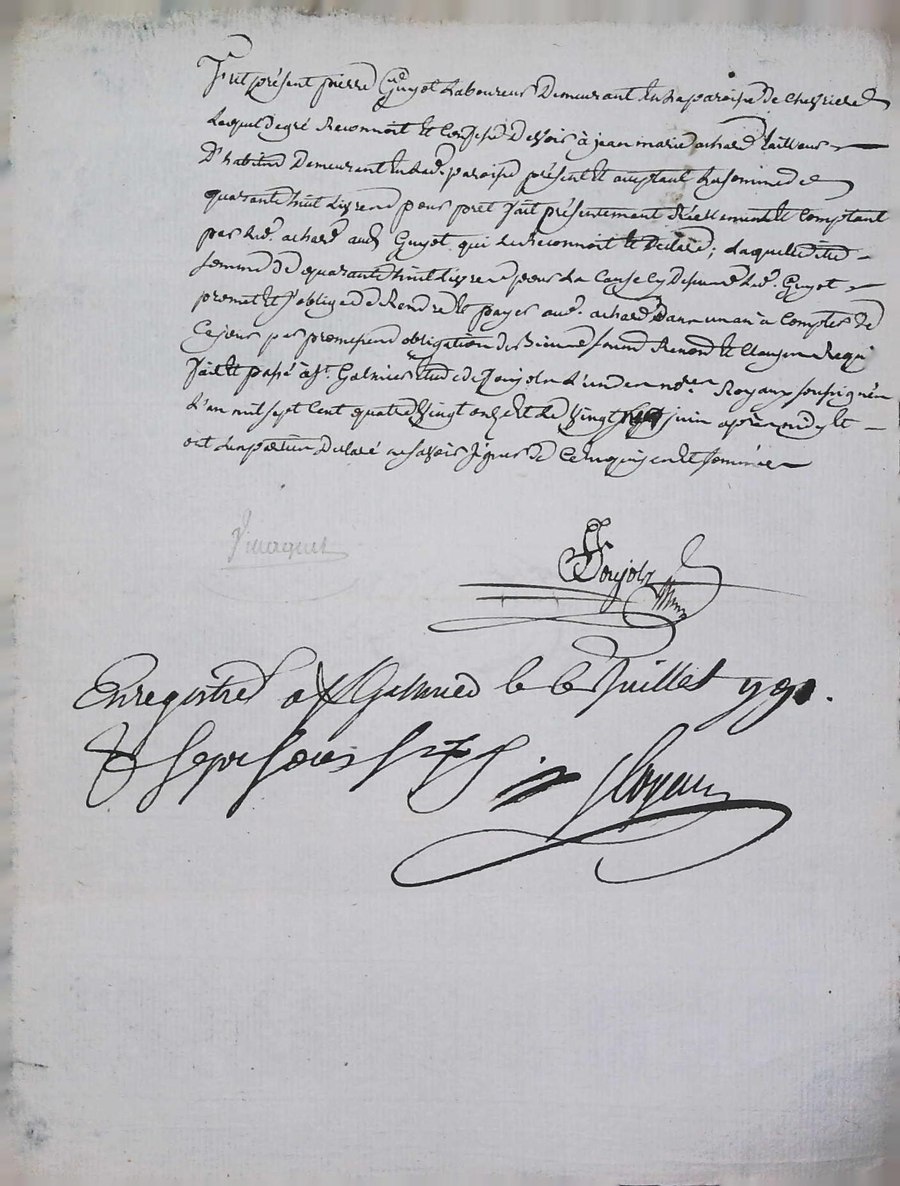 Fut présent pierre Guyot Laboureur Demeurant en la paroisse de Chevrieres
Lequel de gré Reconnoit et Confesse Devoir à jean marie achard tailleur
D'habits Demeurant en lad. paroisse présent et acceptant la somme de
quarante huit Livres pour pret fait présentement Réellement et Comptant
par led. achard aud. Guyot qui le reconnoit et Déclare; laquelle dite
somme de quarante huit livres pour la Cause cy Dessus led. Guyot
promet et s'oblige de Rendre et payer aud. achard Dans un an à Compter de
Ce jour par promesse obligation de Biens soum. Renon. et Clauses Requi
fait et passé à St. Galmier Etude de Poujolz l'un des no.res Royaux soussignés
L'an mil sept Cent quatre Vingt onze et le Vingt juin après midy et
ont les parties Déclaré ne savoir signer de Ce enquis et sommées
Poujolz
Enregistré a St Galmier le 6 Juillet 1791.